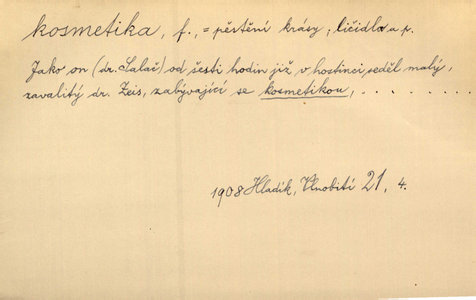 kosmetika, f., = pěstění krásy, líčidla a p.
Jako on (dr. Salač) od šesti hodin již v hostinci seděl malý,
zavalitý dr. Zeis, zabývající se kosmetikou, . . . . . . . .
1908 Hladík, Vlnobití 21, 4.